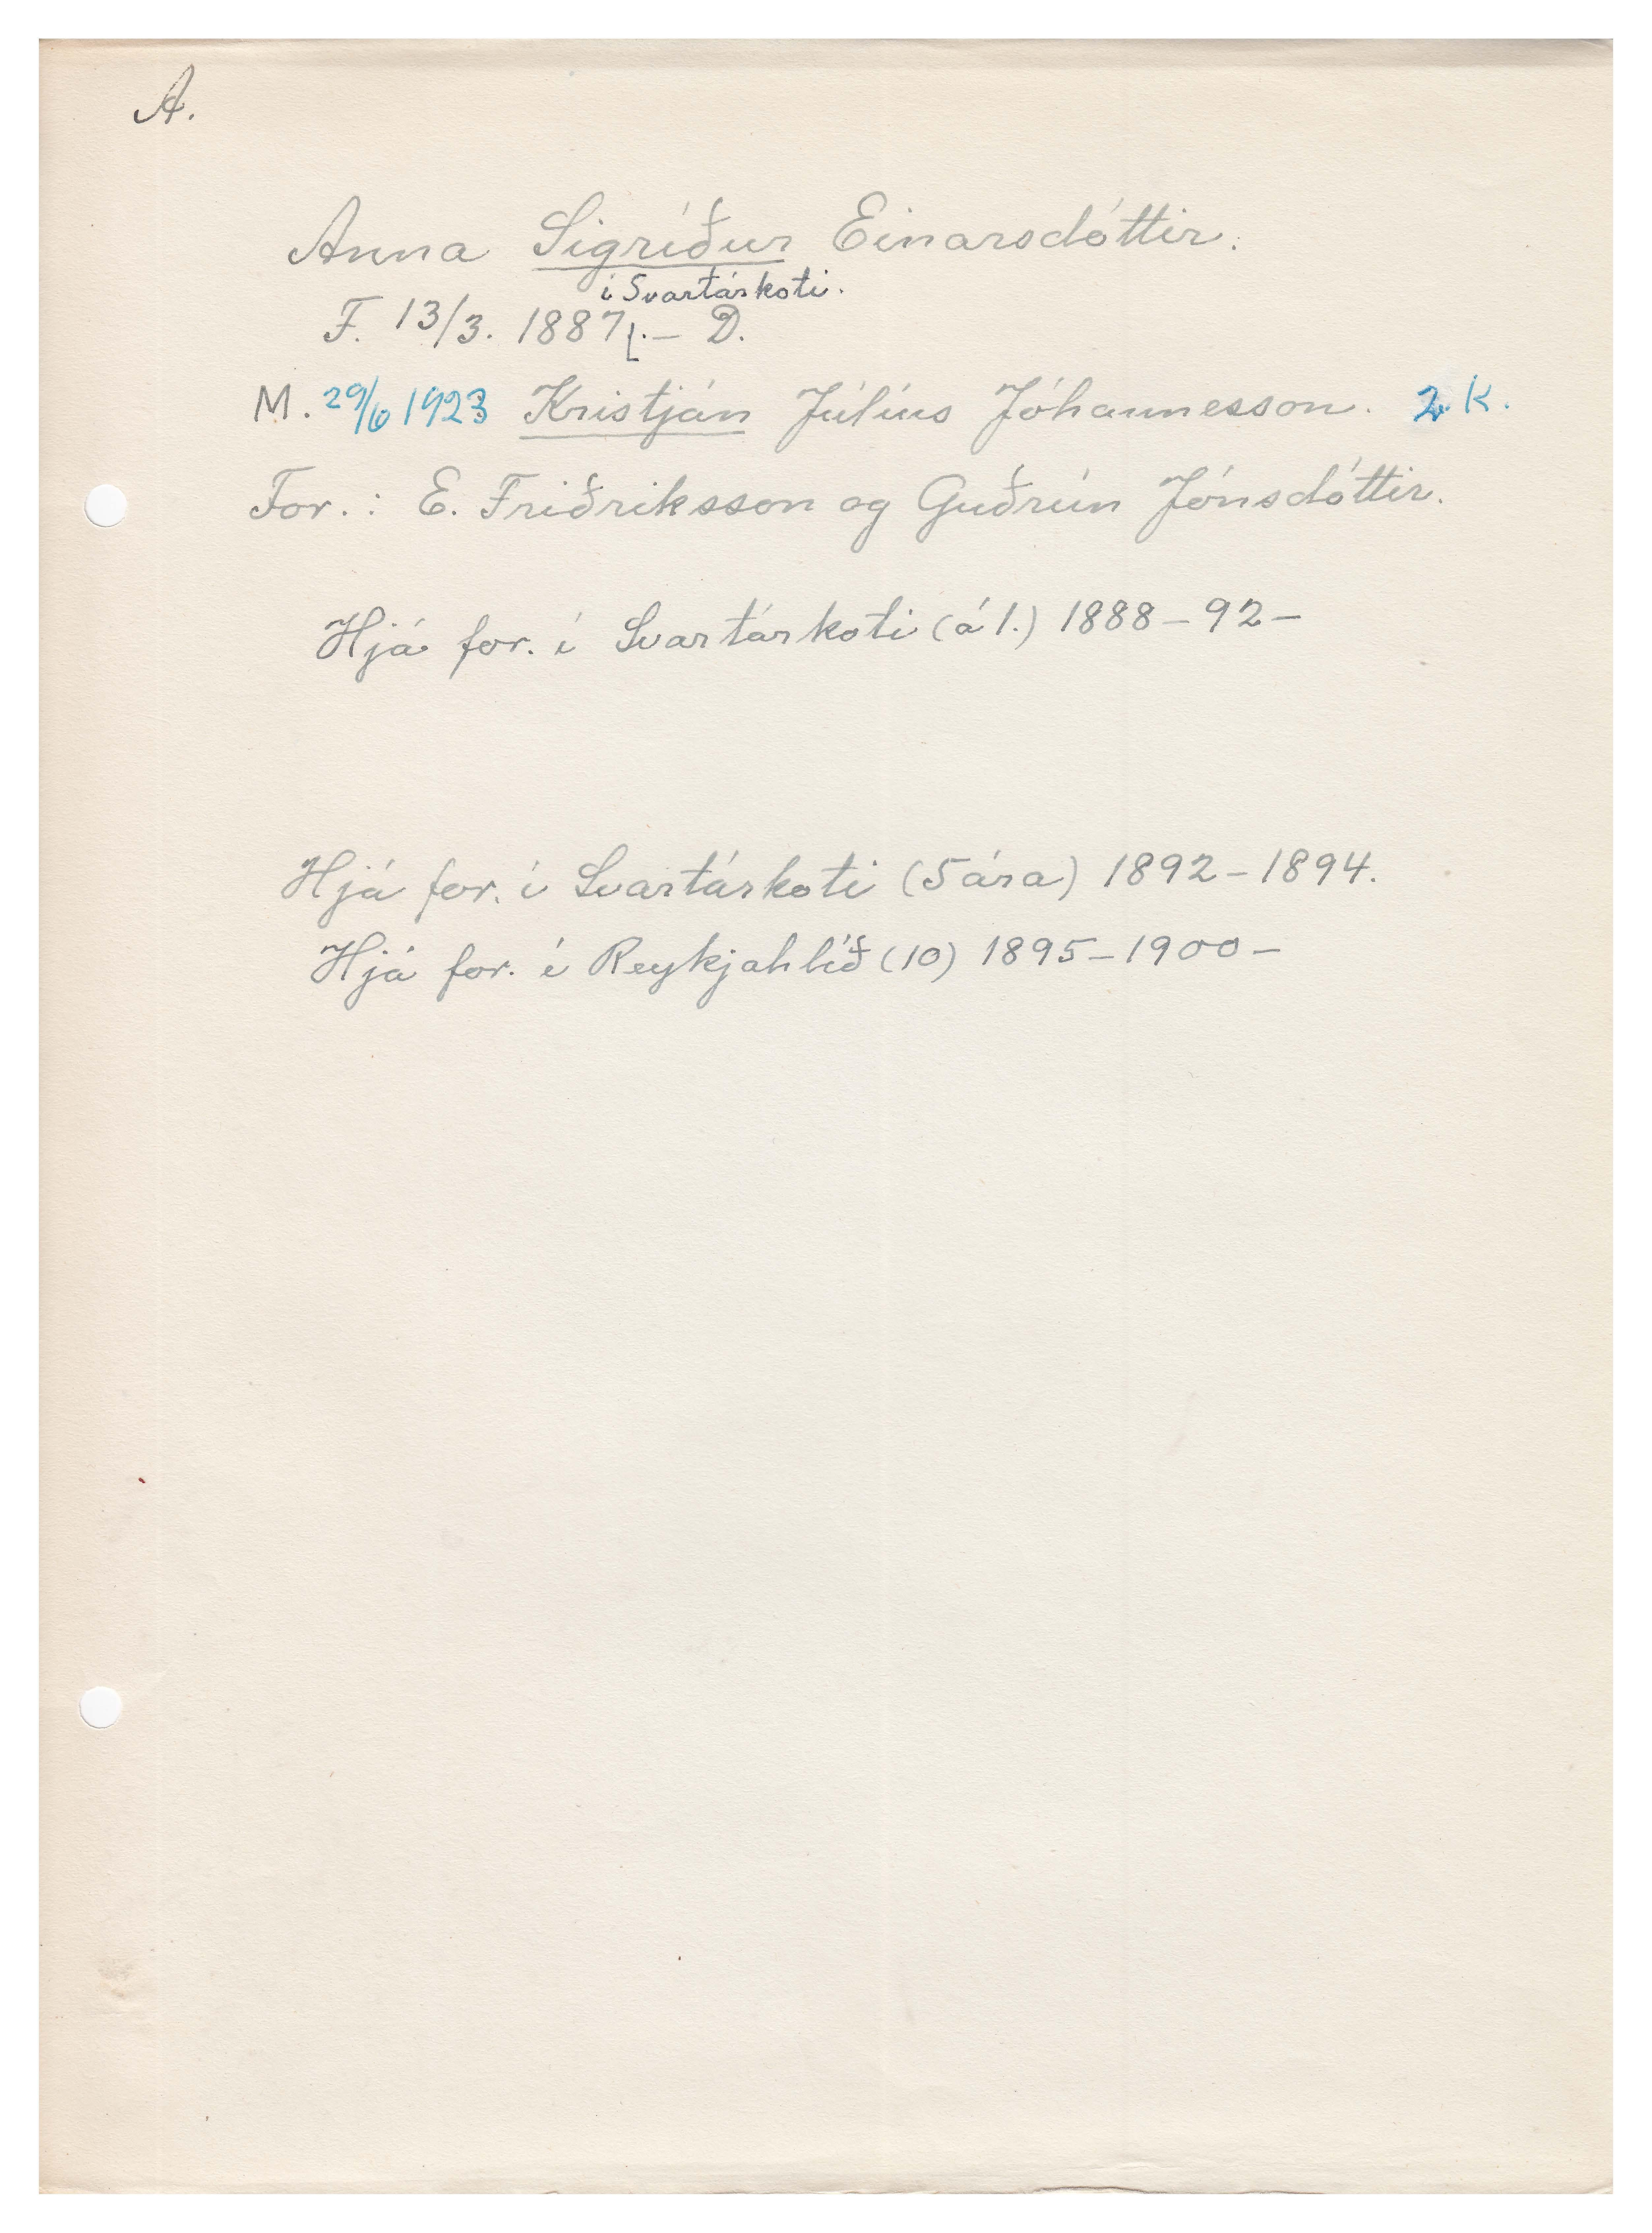 A.
Anna Sigríður Einarsdóttir.
í Svartárkoti.
F. 13/3. 1887. – D.
M. 29/6 1923 Kristján Júlíus Jóhannesson. 2. K.
For. : E. Friðriksson og Guðrún Jónsdóttir.
Hjá for. í Svartárkoti (á 1.) 1888 – 92 –
Hjá for. í Svartárkoti (5 ára) 1892 – 1894.
Hjá for. í Reykjahlíð (10) 1895 – 1900 –